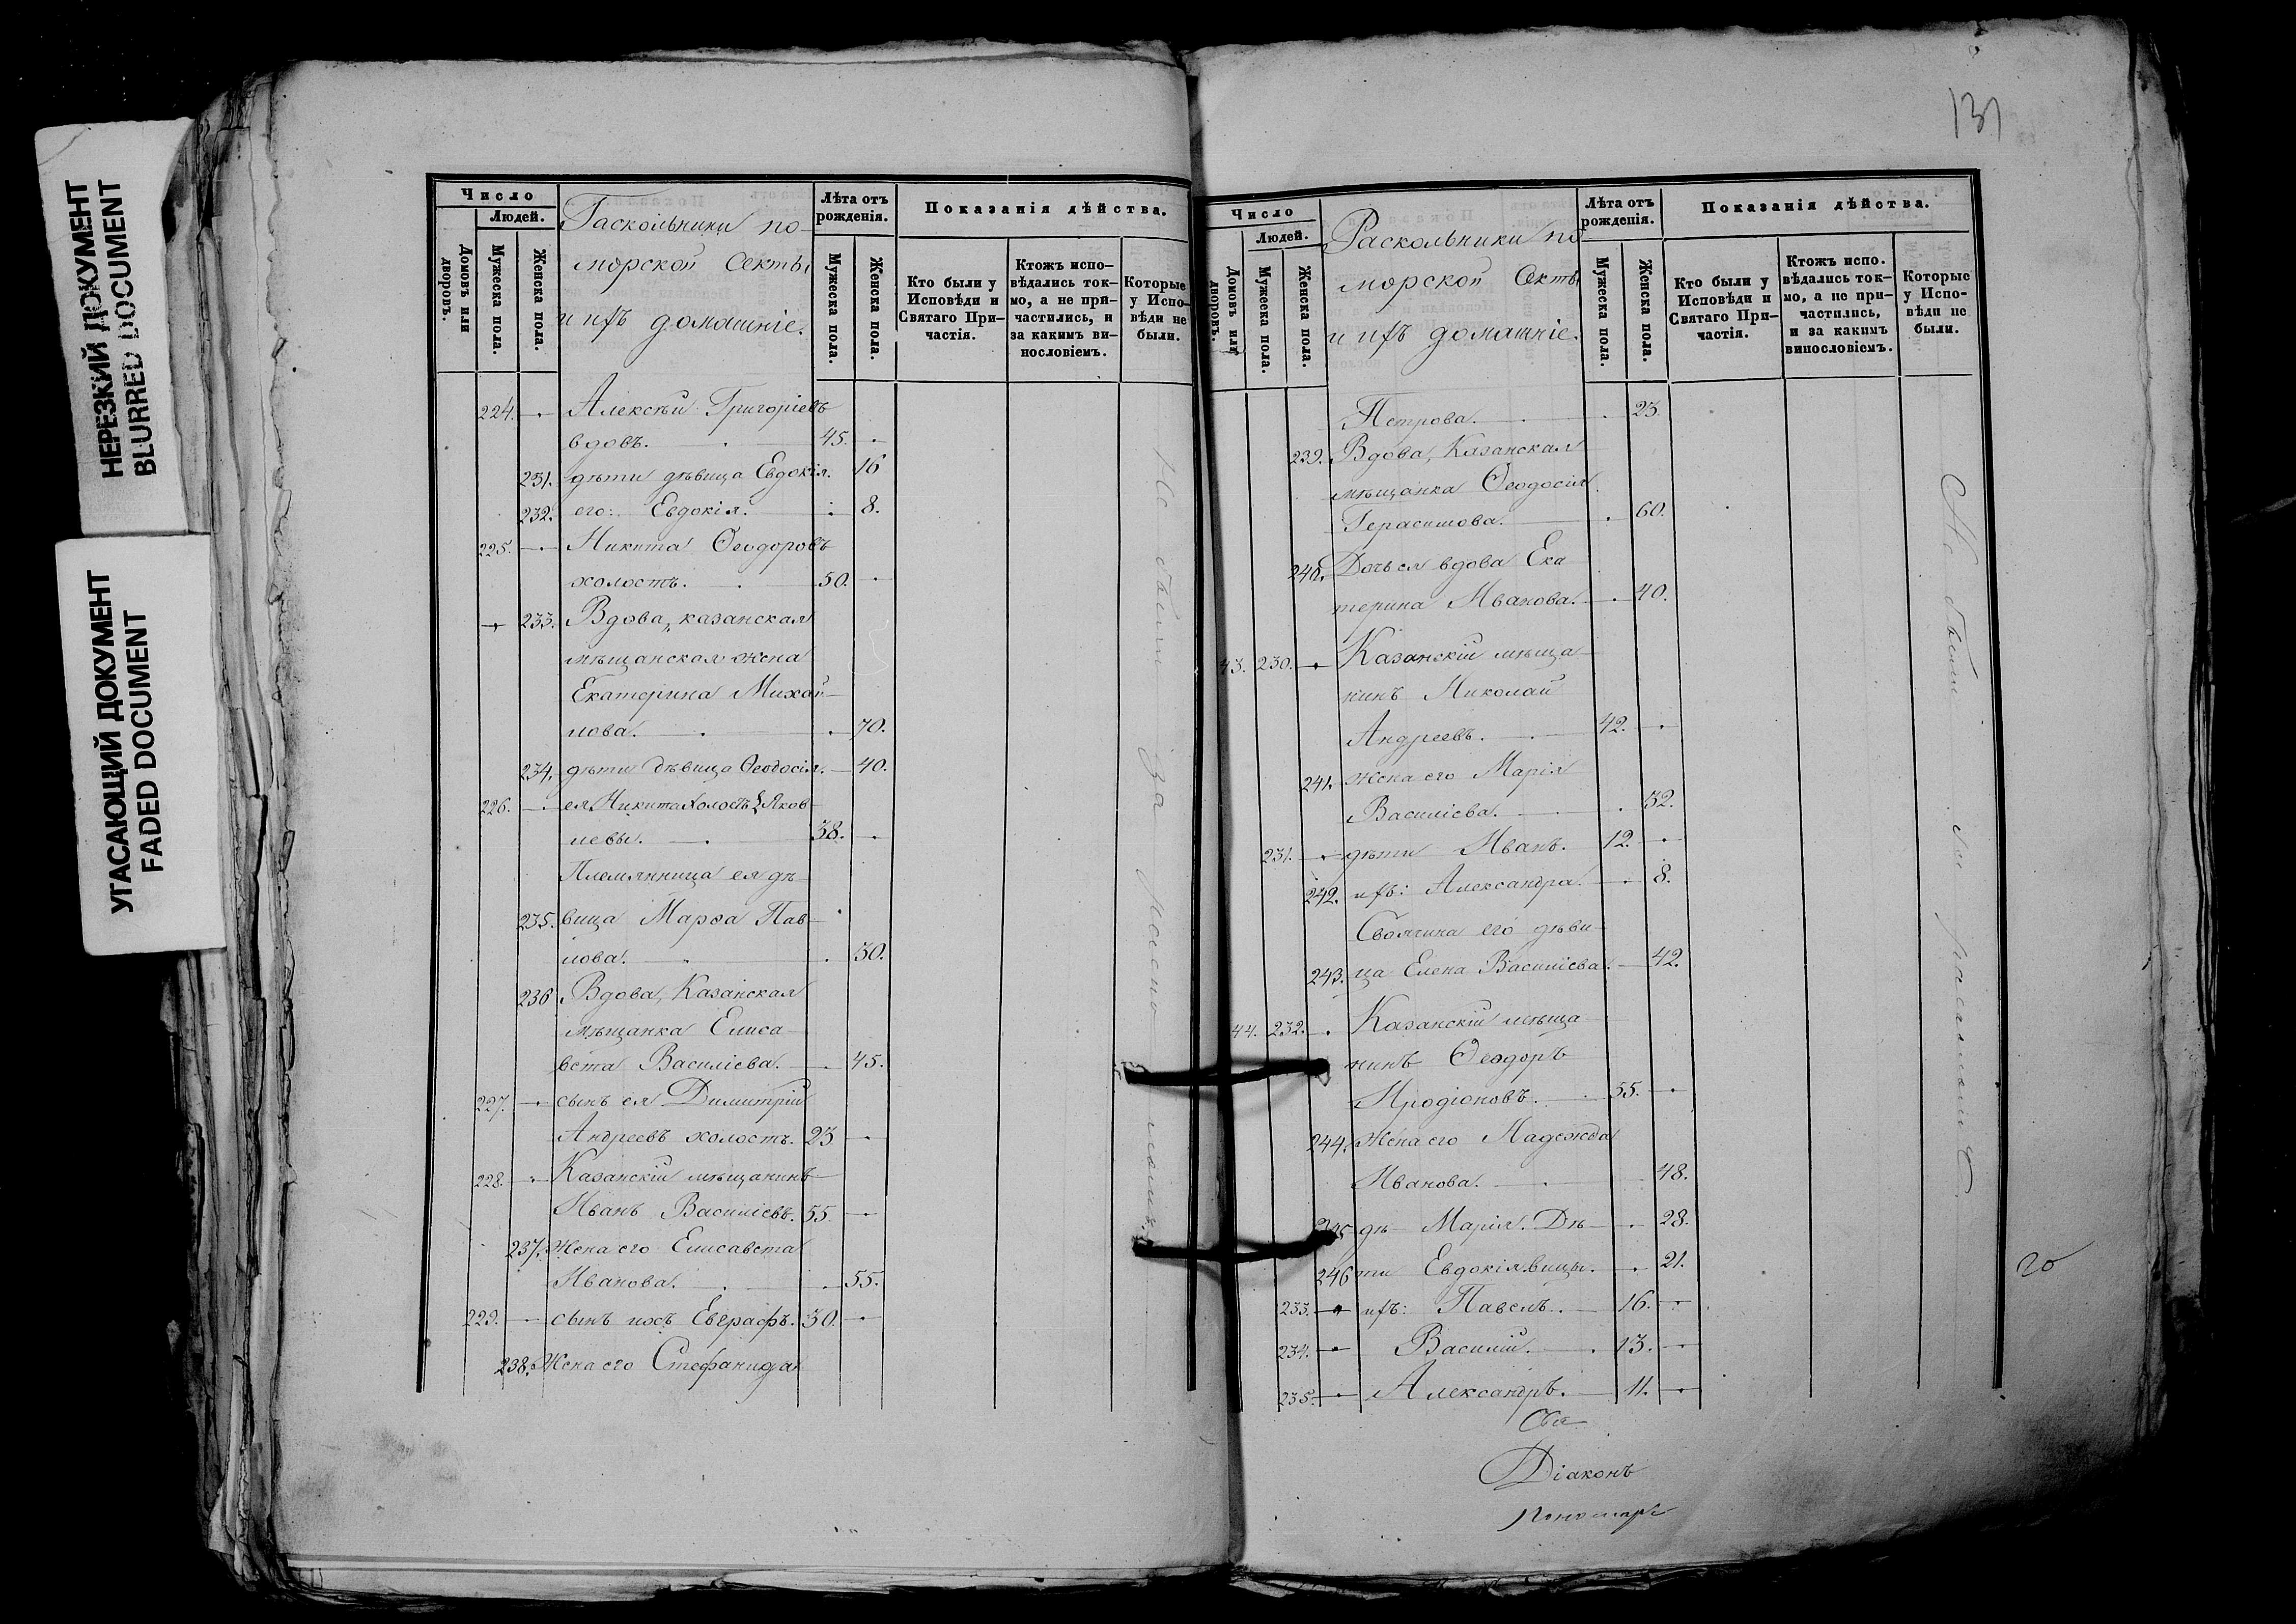 НЕРЕЗКИЙ ДОКУМЕНТ
BLURRED DOCUMENT
УГАСАЮЩИЙ ДОКУМЕНТ
FADED DOCUMENT
Число
Людей.
Домовъ или дворовъ.
Мужеска пола.
Женска пола.
Раскольники по-
морской секты
и ихъ домашніе.
Лѣта отъ рожденія.
Мужеска пола.
Женска пола.
Показанія дѣйства.
Кто были у Исповѣди и Святаго Причастія.
Ктожъ исповѣдались токмо, а не причастились, и за какимъ винословіемъ.
Которые у Исповѣди не были.
224. Алексѣй Григоріевъ
вдовъ. 45.
231. дѣти дѣвица Евдокія. 16
232. его: Евдокія. 8.
225. Никита Ѳеодоровъ
холостъ. 50.
233. Вдова, казанская
мѣщанская жена
Екатерина Михай-
лова. 70.
234. дѣти дѣвица Ѳеодосія. 40.
226. ея Никита холостъ Яков-
левы. 38.
Племянница ея дѣ-
235. вица Марѳа Пав-
лова. 30.
236. Вдова, Казанская
мѣщанка Елиса-
вета Василіева. 45.
227. сынъ ея Димитрій
Андреевъ холостъ. 23
228. Казанскій мѣщанинъ
Иванъ Василіевъ. 55.
237. Жена его Елисавета
Иванова. 55.
229. сынъ ихъ Евграфъ. 30.
238. Жена его Стефанида
Не были за
131
Число
Людей.
Домовъ или дворовъ.
Мужеска пола.
Женска пола.
Раскольники по
морской секты
и ихъ домашніе.
Лѣта отъ рожденія.
Мужеска пола.
Женска пола.
Показанія дѣйства.
Кто были у Исповѣди и Святаго Причастія.
Ктожъ испо. вѣдались токмо, а не причастились, и за какимъ винословіемъ.
Которые у Исповѣди не были.
Петрова. 23.
239. Вдова, Казанская
мѣщанка Ѳеодосія
Герасимова. 60.
240. Дочь ея вдова Ека
терина Иванова. 40.
43. 230. Казанскій мѣща-
нинъ Николай
Андреевъ. 42.
241. жена его Марія
Василіева. 32.
231. дѣти Иванъ. 12.
242. ихъ: Александра. 8.
Своячина его дѣви-
243. ца Елена Василіева. 42.
44. 232. Казанскій мѣща-
нинъ Ѳеодоръ
Иродіоновъ. 55.
244. Жена его Надежда
Иванова. 48.
245 дѣ- Марія. Дѣ- 28.
246 ти Евдокія. вицы. 21.
233. ихъ: Павелъ. 16.
234. Василій. 13.
235. Александръ. 11.
Не были
Свя
Діаконъ
Пономарь
20